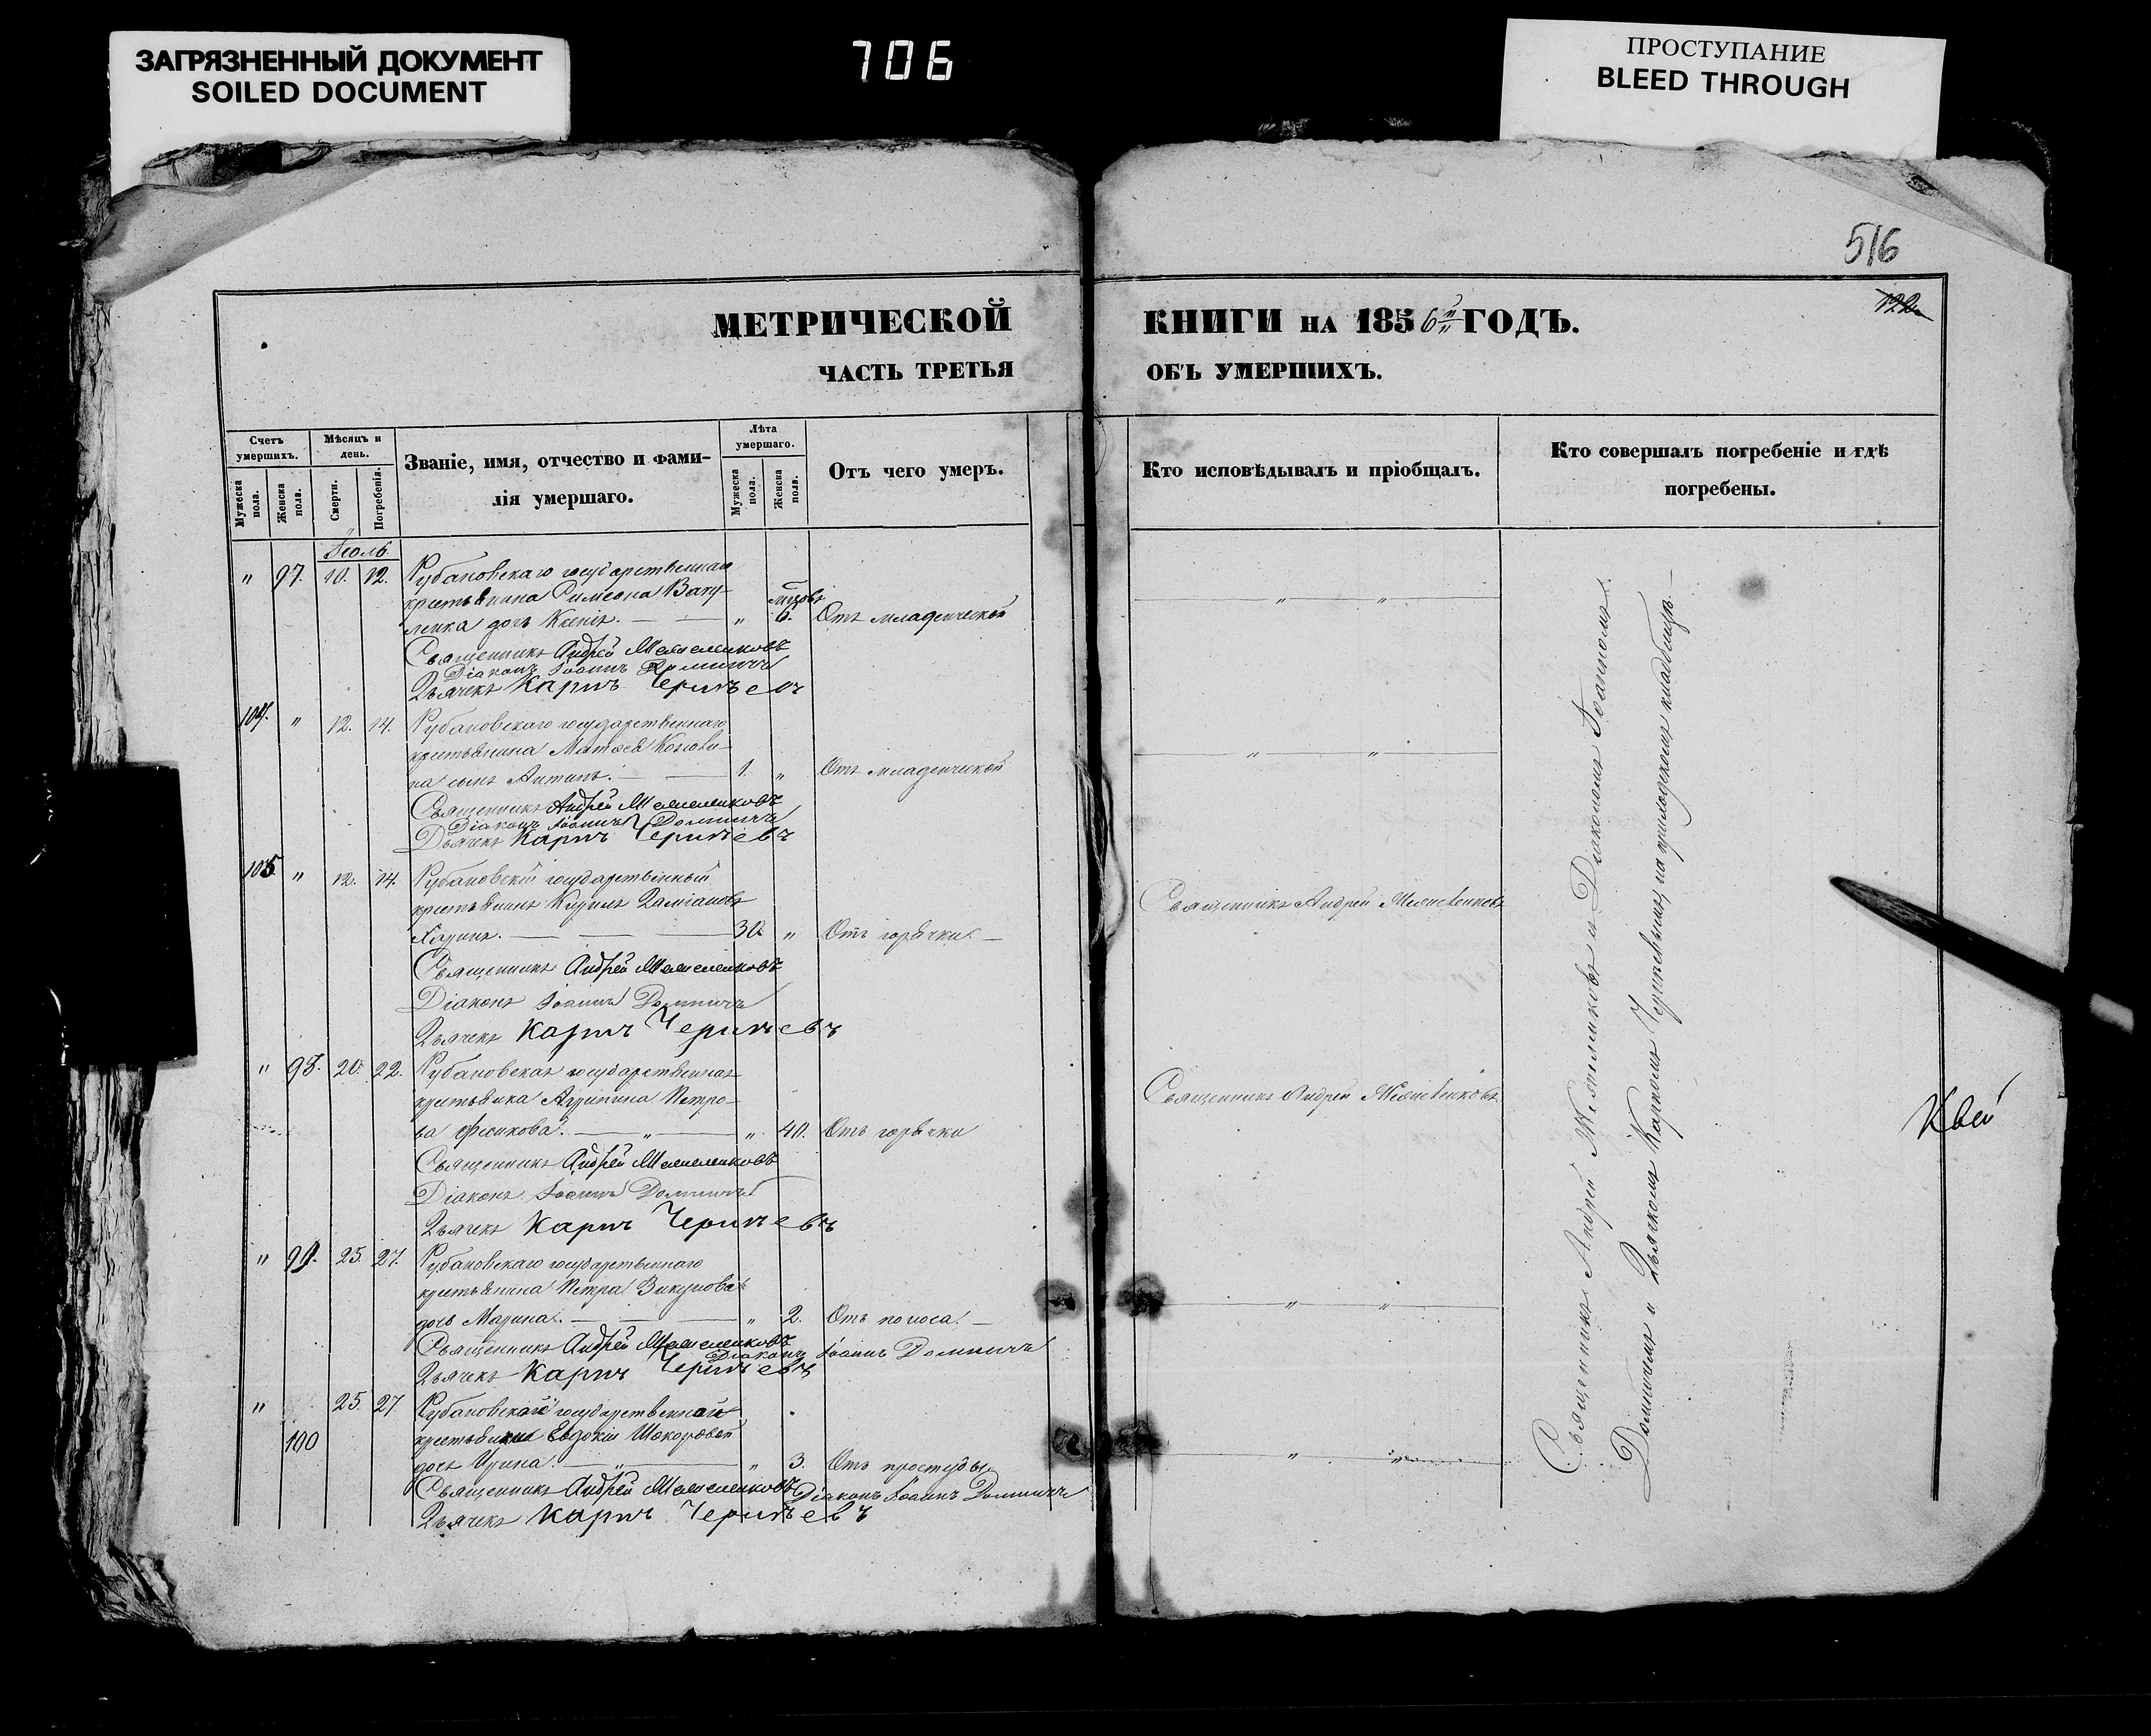 ЗАГРЯЗНЕННЫЙ ДОКУМЕНТ
SOILED DOCUMENT
706
ПРОСТУПАНИЕ
BLEED THROUGH
516
122
МЕТРИЧЕСКОЙ
ЧАСТЬ ТРЕТЬЯ
Счетъ умершихъ.
Мужеска пола.
Женска пола.
Мѣсяцъ и день.
Смерти.
Погребенія.
Званіе, имя, отчество и фами-
лія умершаго.
Лѣта умершаго.
Мужеска пола.
Женска пола.
Отъ чего умеръ.
Іюль.
" 97. 10. 12. Рубановскаго государственнаго
крестьянина Симеона Ваку-
ленка дочь Ксенія. " 6. Отъ младенческой
Священникъ Андрей
Діаконъ Іоаннъ Доминичъ
Дьячекъ Карпъ
104. " 12. 14. Рубановскаго государственнаго
крестьянина Матвея
сынъ Антипъ. 1. " Отъ младенческой
Священникъ Андрей
Діаконъ Іоаннъ Доминичъ
Дьячекъ Карпъ
105. " 12. 14. Рубановскій государственный
крестьянинъ Кирилъ Даміановъ
30. " Отъ горячки.
Священникъ Андрей
Діаконъ Іоаннъ Доминичъ
Дьячекъ Карпъ
" 98. 20. 22. Рубановская государственная
крестьянка Агрипина Петро-
ва " " 40. Отъ горячки
Священникъ Андрей
Діаконъ Іоаннъ Доминичъ
Дьячекъ Карпъ
" 99. 25. 27. Рубановскаго государственнаго
крестьянина Петра Викулова
дочь Марина. " 2. Отъ поноса.
Священникъ Андрей
Діаконъ Іоаннъ Доминичъ
Дьячекъ Карпъ
" 100 25. 27. Рубановской государственной
крестьянки Евдокіи
дочь Ирина. " " 3. Отъ простуды
Священникъ Андрей Діаконъ Іоаннъ Доминичъ
Дьячекъ Карпъ
КНИГИ НА 1856 й ГОДЪ.
ОБЪ УМЕРШИХЪ.
Кто исповѣдывалъ и пріобщалъ.
Кто совершалъ погребеніе и гдѣ
погребены.
" "
" "
Священникъ Андрей
Священникъ Андрей
" "
" "
Священникъ Андрей и Діакономъ Іоанномъ
Доминичемъ и Дьячкомъ Карпомъ на приходскомъ кладбищѣ.